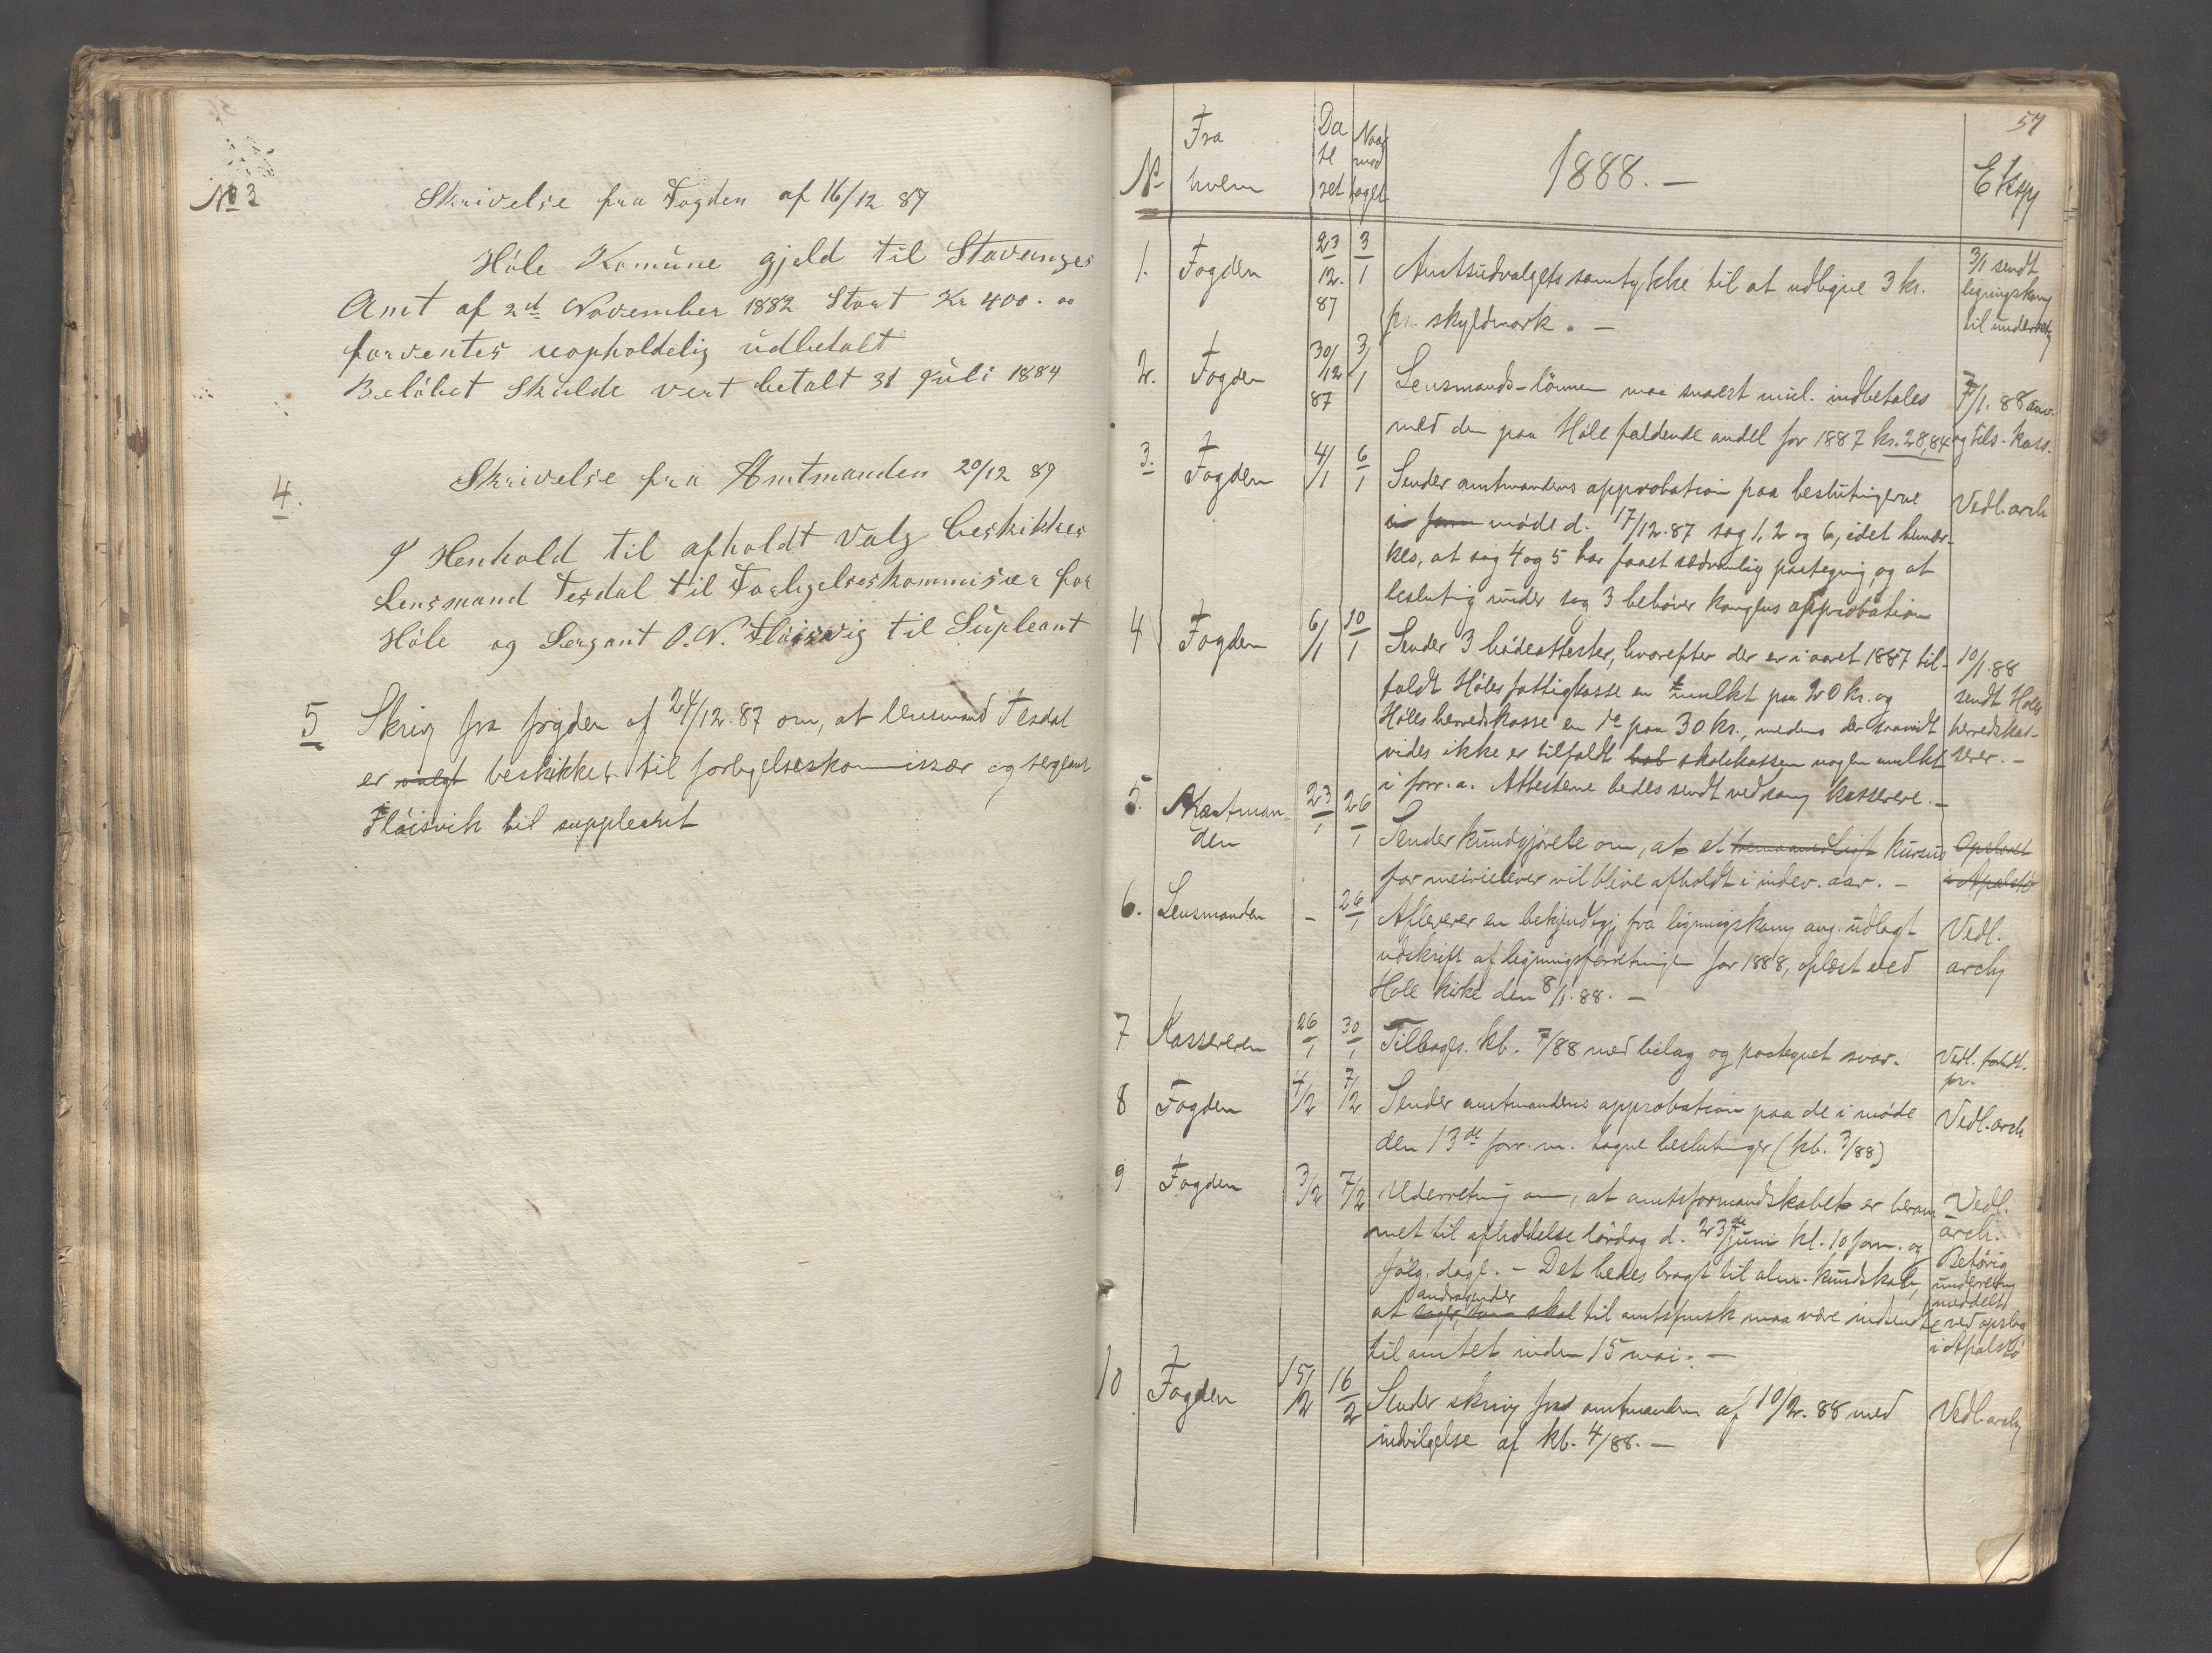 № 3
Skrivelse fra Fogden af 16/12 87
Höle Komune gjeld til Stavanger
Amt af 2d November 1882 Stort Kr 400. oo
forventes uopholdelig udbetalt
Belöbet Skulde vert betalt 31 Juli 1884
4.
Skrivelse fra Amtmanden 20/12 87
I Henhold til afholdt Valg beskikkes
Lensmand Tesdal til Forligelseskommisær for
Höle og Sergant O. N. Flöisvig til Supleant
5 Skriv fra fogden af 24/12. 87 om, at lensmand Tesdal
er valgt beskikket til forligelseskommissær og sergeant
Flöisvik til suppleant
57
№ Fra hvem Da te ret Naar mod taget 1888. — Eksp
1. Fogden 23/12. 87 3/1 Amtsudvalgets samtykke til at udligne 3 kr.
pr. skyldmark. —
3/1 sendt
ligningskomm
til underretn
2. Fogden 30/12 87 3/1 Lensmands-lönnen maa snarest mul. indbetales
med den paa Höle faldende andel for 1887 kr. 28,84
7/1. 88 anv.
og tils. kass.
3. Fogden 4/1 6/1 Sender amtmandens approbation paa beslutningerne
i form möde d. 17/12. 87 sag 1, 2 og 6, idet bemær-
kes, at sag 4 og 5 har faaet sædvanlig paategning, og at
beslutnig under sag 3 behöver kongens approbation
Vedl. arch
4 Fogden 6/1 10/1 Sender 3 bödeattester, hvorefter der er i aaret 1887 til-
faldt Höles fattigkasse en mulkt paa 20 kr. og
Höles herredskasse en do paa 30 kr., medens der saavidt
vides ikke er tilfaldt skolekassen nogen mulkt
i forr. a. Attesterne bedes sendt vedkom kasserere. —
10/1. 88
sendt Höles
herredskas-
serer. —
5. Amtman-
den 23/1 26/1 Sender kundgjörelse om, at et kursus
for meierielever vil blive afholdt i indev. aar. —
Opslaaet
i Apalstö
6. Lensmanden - 26/1 Afleverer en bekjendtgj fra ligningskomm ang. udlagt
udskrift af ligningsforretningen for 1888, oplæst ved
Höle kirke den 8/1. 88. —
Vedl.
arch
7 Kassereren 26/1 30/1 Tilbages. kb. 7/88 med bilag og paategnet svar.
Vedl. forhdl.
pr.
8 Fogden 4/2 7/2 Sender amtmandens approbation paa de i möde
den 13de forr. m. tagne beslutninger (kb. 3/88)
Vedl. arch
9 Fogden 3/2 7/2 Underretnig om, at amtsformandskabet er beram
met til afholdelse lördag d. 23de juni kl. 10 form. og
fölg. dage. — Det bedes bragt til alm. kundskab,
at andragender til amtsformsk maa være indsendt
til amtet inden 15 mai. —
Vedl.
arch.
Behörig
underretng
meddelt
ved opslag
i Apalstö
10 Fogden 15/2 16/2 Sender skriv fra amtmanden af 10/2. 88 med
indvilgelse af kb. 4/88. —
Vedl. arch